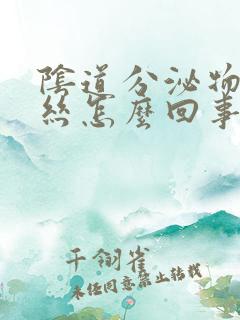 陰道分泌物
絲怎麼回事
千翎雀
未经同意禁止转载